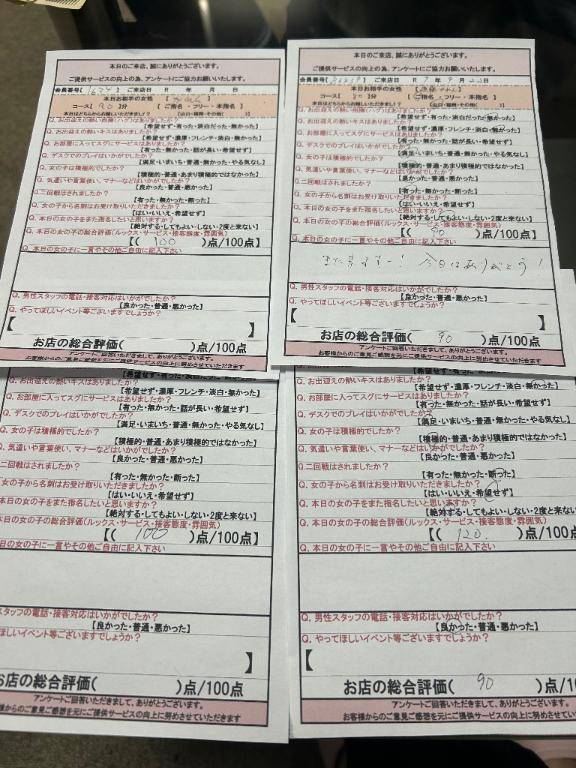 本日のご来店、誠にありがとうございます。
ご提供サービスの向上の為、アンケートにご協力お願いいたします。
会員番号( ) ご来店日 R 年 月 日
本日お相手の女性 【 】
コース【 90 】分 【ご指名・フリー・本指名】
Q. お出迎えの熱いキスはありましたか?
【希望せず・濃厚・フレンチ・淡白・無かった】
Q. お部屋に入ってスグにサービスはありましたか?
【有った・無かった・話が長い・希望せず】
Q. デスクでのプレイはいかがでしたか?
【満足・いまいち・普通・無かった・やる気なし】
Q. 女の子は積極的でしたか?
【積極的・普通・あまり積極的ではなかった】
Q. 気遣いや言葉使い、マナーなどはいかがでしたか?
【良かった・普通・悪かった】
Q. 二回戦はされましたか?
【有った・無かった・断った】
Q. 女の子から名刺はお受け取りいただきましたか?
【はい・いいえ・希望せず】
Q. 本日の女の子をまた指名したいと思いますか?
【絶対する・してもよい・しない・2度と来ない】
Q. 本日の女の子の総合評価(ルックス・サービス・接客態度・雰囲気)
【( 100 )点/100点】
Q. 本日の女の子に一言やその他ご自由に記入下さい
Q. 男性スタッフの電話・接客対応はいかがでしたか?
【良かった・普通・悪かった】
Q. やってほしいイベント等ございますでしょうか?
【 】
お店の総合評価( )点/100点
アンケートご回答いただきまして、ありがとうございます。
本日のご来店、誠にありがとうございます。
ご提供サービスの向上の為、アンケートにご協力お願いいたします。
ご来店日 R 7 年 9 月 日
本日お相手の女性
【ご指名・フリー・本指名】
Q. お出迎えの熱いキスはありましたか?
【希望せず・濃厚・フレンチ・淡白・無かった】
Q. お部屋に入ってスグにサービスはありましたか?
【有った・無かった・話が長い・希望せず】
Q. デスクでのプレイはいかがでしたか?
【満足・いまいち・普通・無かった・やる気なし】
Q. 女の子は積極的でしたか?
【積極的・普通・あまり積極的ではなかった】
Q. 気遣いや言葉使い、マナーなどはいかがでしたか?
【良かった・普通・悪かった】
Q. 二回戦はされましたか?
【有った・無かった・断った】
Q. 女の子から名刺はお受け取りいただきましたか?
【はい・いいえ・希望せず】
Q. 本日の女の子をまた指名したいと思いますか?
【絶対する・してもよい・しない・2度と来ない】
Q. 本日の女の子の総合評価(ルックス・サービス・接客態度・雰囲気)
【( 90 )点/100点】
Q. 本日の女の子に一言やその他ご自由に記入下さい
また来るネー! 今日はありがとう!
Q. 男性スタッフの電話・接客対応はいかがでしたか?
【良かった・普通・悪かった】
Q. やってほしいイベント等ございますでしょうか?
【 】
お店の総合評価( 90 )点/100点
アンケートご回答いただきまして、ありがとうございます。
お客様からのご意見ご感想を元にご提供サービスの向上に努めさせていただきます
Q. お出迎えの熱いキスはありましたか?
【希望せず・濃厚・フレンチ・淡白・無かった】
お部屋に入ってスグにサービスはありましたか?
【有った・無かった・話が長い・希望せず】
デスクでのプレイはいかがでしたか?
【満足・いまいち・普通・無かった・やる気なし】
女の子は積極的でしたか?
【積極的・普通・あまり積極的ではなかった】
気遣いや言葉使い、マナーなどはいかがでしたか?
【良かった・普通・悪かった】
二回戦はされましたか?
【有った・無かった・断った】
女の子から名刺はお受け取りいただきましたか?
【はい・いいえ・希望せず】
本日の女の子をまた指名したいと思いますか?
【絶対する・してもよい・しない・2度と来ない】
本日の女の子の総合評価(ルックス・サービス・接客態度・雰囲気)
【( 100 )点/100点】
本日の女の子に一言やその他ご自由に記入下さい
スタッフの電話・接客対応はいかがでしたか?
【良かった・普通・悪かった】
ほしいイベント等ございますでしょうか?
】
お店の総合評価( )点/100点
アンケートご回答いただきまして、ありがとうございます。
お客様からのご意見ご感想を元にご提供サービスの向上に努めさせていただきます
Q. お出迎えの熱いキスはありましたか?
【希望せず・濃厚・フレンチ・淡白・無かった】
Q. お部屋に入ってスグにサービスはありましたか?
【有った・無かった・話が長い・希望せず】
Q. デスクでのプレイはいかがでしたか?
【満足・いまいち・普通・無かった・やる気なし】
Q. 女の子は積極的でしたか?
【積極的・普通・あまり積極的ではなかった】
Q. 気遣いや言葉使い、マナーなどはいかがでしたか?
【良かった・普通・悪かった】
Q. 二回戦はされましたか?
【有った・無かった・断った】
Q. 女の子から名刺はお受け取りいただきましたか?
【はい・いいえ・希望せず】
Q. 本日の女の子をまた指名したいと思いますか?
【絶対する・してもよい・しない・2度と来ない】
Q. 本日の女の子の総合評価(ルックス・サービス・接客態度・雰囲気)
【( 120. )点/100点
Q. 本日の女の子に一言やその他ご自由に記入下さい
Q. 男性スタッフの電話・接客対応はいかがでしたか?
【良かった・普通・悪かった】
Q. やってほしいイベント等ございますでしょうか?
【
お店の総合評価( 90 )点/10
アンケートご回答いただきまして、ありがとうございます。
お客様からのご意見ご感想を元にご提供サービスの向上に努めさせてい